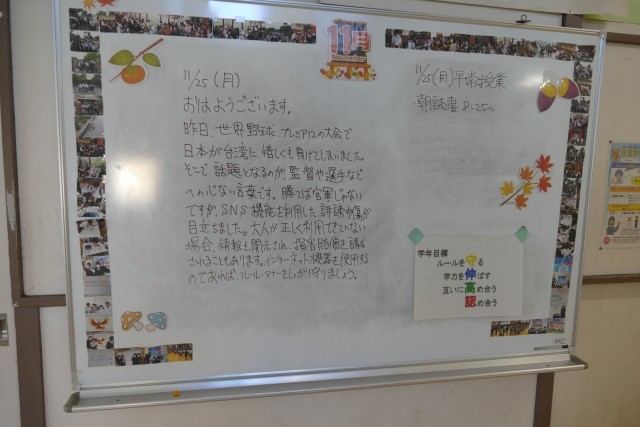 11月
November
11/25(月)
おはようございます。
昨日、世界野球プレミア12の大会で
日本が台湾に惜しくも負けてしまいました。
そこで話題となるのが、監督や選手など
への心ない言葉です。勝てば官軍じゃない
ですが、SNS機能を利用した誹謗中傷が
目立ちました。大人が正しく利用できていない
場合、情報も開示され、損害賠償を請求
されることもあります。インターネット機器を使用する
のであれば、ルール・マナーをしっかり守りましょう。
11/25(月)平常授業
・朝読書 8:25~
学年目標
ルールを守る
学力を伸ばす
互いに高め合う
認め合う